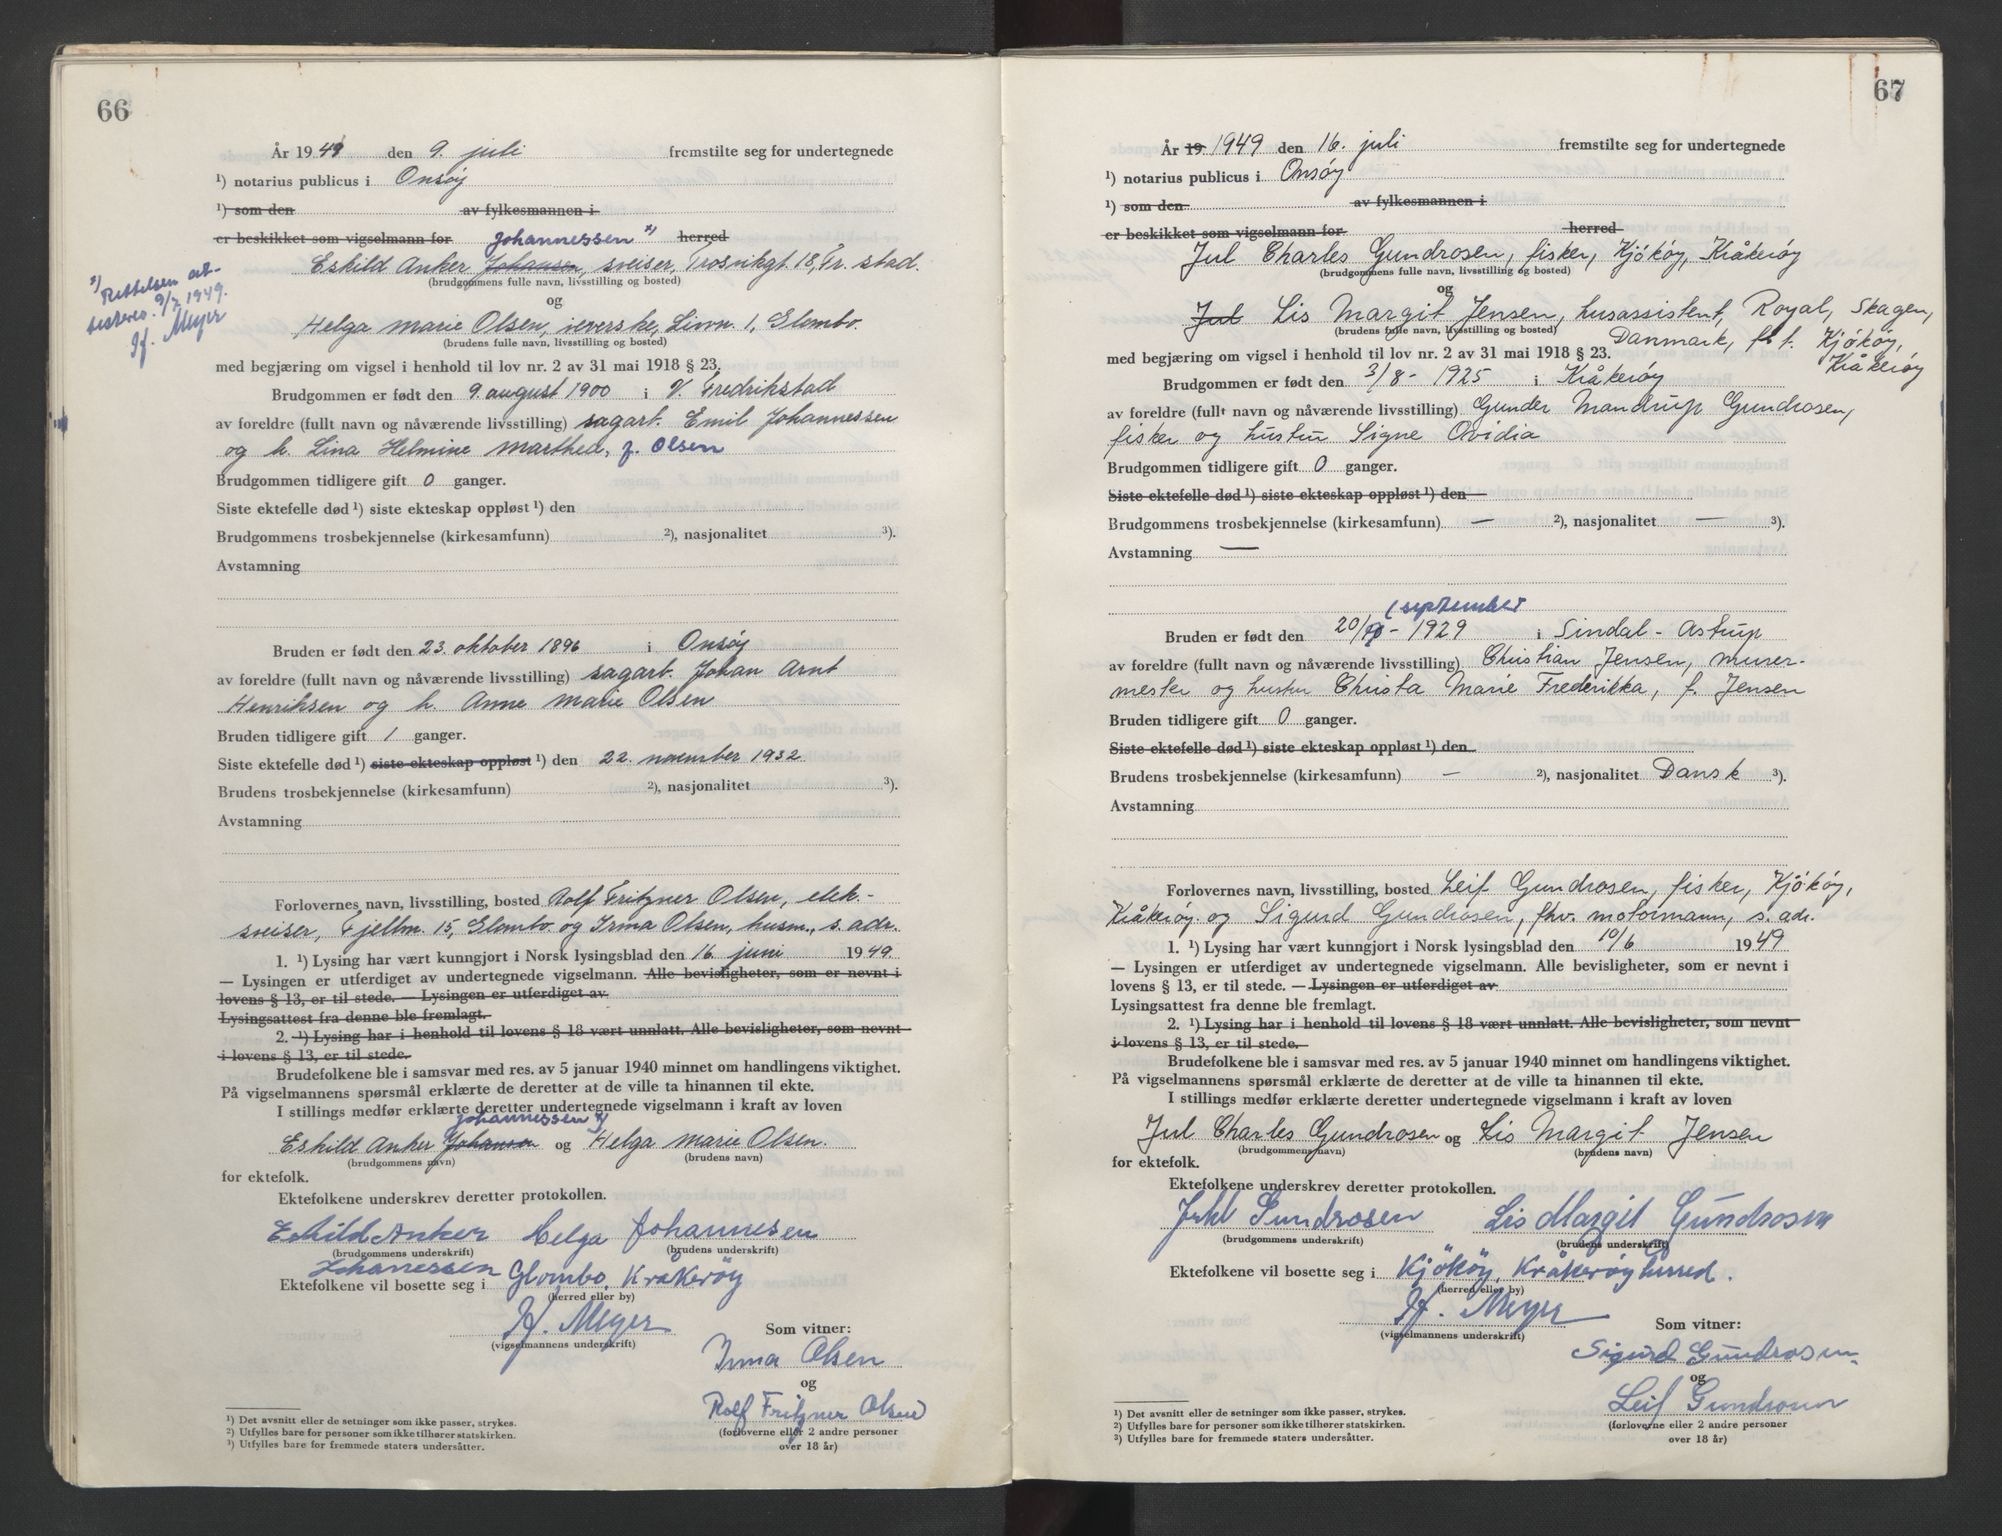 66
År 1949 den 9. juli fremstilte seg for undertegnede
¹) notarius publicus i Onsøy
¹) som den av fylkesmannen i
er beskikket som vigselmann for Johannessen ˣ) herred
Eskild Anker Johansen, sveiser, Trosvikgt. 18, Fr.stad.
(brudgommens fulle navn, livsstilling og bosted)
ˣ) Rettelsen at-
testeres. 9/7 1949.
Hf. Meyer
og
Helga Marie Olsen, veverske, Livn. 1, Glombo.
(brudens fulle navn, livsstilling og bosted)
med begjæring om vigsel i henhold til lov nr. 2 av 31 mai 1918 § 23.
Brudgommen er født den 9. august 1900 i V. Fredrikstad
av foreldre (fullt navn og nåværende livsstilling) sagarb. Emil Johannessen
og h. Lina Helmine Marthea, f. Olsen
Brudgommen tidligere gift 0 ganger.
Siste ektefelle død ¹) siste ekteskap oppløst ¹) den
Brudgommens trosbekjennelse (kirkesamfunn) ²), nasjonalitet ³).
Avstamning
Bruden er født den 23. oktober 1896 i Onsøy
av foreldre (fullt navn og nåværende livsstilling) sagarb. Johan Arnt
Henriksen og h. Anne Marie Olsen
Bruden tidligere gift 1 ganger.
Siste ektefelle død ¹) siste ekteskap oppløst ¹) den 22. november 1932
Brudens trosbekjennelse (kirkesamfunn) ²), nasjonalitet ³).
Avstamning
Forlovernes navn, livsstilling, bosted Rolf Fritzner Olsen, elek.-
sveiser, Fjellm. 15, Glombo og Irma Olsen, husm., s. adr.
1. ¹) Lysing har vært kunngjort i Norsk lysingsblad den 16. juni 1949.
— Lysingen er utferdiget av undertegnede vigselmann. Alle bevisligheter, som er nevnt i
lovens § 13, er til stede. — Lysingen er utferdiget av
Lysingsattest fra denne ble fremlagt.
2. ¹) Lysing har i henhold til lovens § 18 vært unnlatt. Alle bevisligheter, som nevnt
i lovens § 13, er til stede.
Brudefolkene ble i samsvar med res. av 5 januar 1940 minnet om handlingens viktighet.
På vigselmannens spørsmål erklærte de deretter at de ville ta hinannen til ekte.
I stillings medfør erklærte deretter undertegnede vigselmann i kraft av loven
Johannessen ˣ)
Eskild Anker Johansen og Helga Marie Olsen.
(brudgommens navn) (brudens navn)
for ektefolk.
Ektefolkene underskrev deretter protokollen.
Eskild Anker Helga Johannesen
(brudgommens underskrift) (brudens underskrift)
Johannessen
Ektefolkene vil bosette seg i Glombo, Kråkerøy
(herred eller by)
Hf. Meyer
(vigselmannens underskrift)
Som vitner:
Irma Olsen
og
Rolf Fritzner Olsen
(forloverne eller 2 andre personer
over 18 år)
¹) Det avsnitt eller de setninger som ikke passer, strykes.
²) Utfylles bare for personer som ikke tilhører statskirken.
³) Utfylles bare for fremmede staters undersåtter.
67
År 19 1949 den 16. juli fremstilte seg for undertegnede
¹) notarius publicus i Onsøy
¹) som den av fylkesmannen i
er beskikket som vigselmann for herred
Jul Charles Gundrosen, fisker, Kjøkøy, Kråkerøy
(brudgommens fulle navn, livsstilling og bosted)
og
Jul Lis Margit Jensen, husassistent, Royal, Skagen,
(brudens fulle navn, livsstilling og bosted) Danmark, f.t. Kjøkøy,
Kråkerøy
med begjæring om vigsel i henhold til lov nr. 2 av 31 mai 1918 § 23.
Brudgommen er født den 3/8 - 1925 i Kråkerøy
av foreldre (fullt navn og nåværende livsstilling) Gunder Mandrup Gundrosen,
fisker og hustru Signe Ovidia
Brudgommen tidligere gift 0 ganger.
Siste ektefelle død ¹) siste ekteskap oppløst ¹) den
Brudgommens trosbekjennelse (kirkesamfunn) — ²), nasjonalitet — ³).
Avstamning —
september
Bruden er født den 20/9 - 1929 i Sindal - Astrup
av foreldre (fullt navn og nåværende livsstilling) Christian Jensen, murer-
mester og hustru Christa Marie Frederikka, f. Jensen
Bruden tidligere gift 0 ganger.
Siste ektefelle død ¹) siste ekteskap oppløst ¹) den
Brudens trosbekjennelse (kirkesamfunn) — ²), nasjonalitet Dansk ³).
Avstamning
Forlovernes navn, livsstilling, bosted Leif Gundrosen, fisker, Kjøkøy,
Kråkerøy og Sigurd Gundrosen, fhv. motormann, s. adr.
1. ¹) Lysing har vært kunngjort i Norsk lysingsblad den 10/6 1949
— Lysingen er utferdiget av undertegnede vigselmann. Alle bevisligheter, som er nevnt i
lovens § 13, er til stede. — Lysingen er utferdiget av
Lysingsattest fra denne ble fremlagt.
2. ¹) Lysing har i henhold til lovens § 18 vært unnlatt. Alle bevisligheter, som nevnt
i lovens § 13, er til stede.
Brudefolkene ble i samsvar med res. av 5 januar 1940 minnet om handlingens viktighet.
På vigselmannens spørsmål erklærte de deretter at de ville ta hinannen til ekte.
I stillings medfør erklærte deretter undertegnede vigselmann i kraft av loven
Jul Charles Gundrosen og Lis Margit Jensen
(brudgommens navn) (brudens navn)
for ektefolk.
Ektefolkene underskrev deretter protokollen.
Juhl Gundrosen Lis Margit Gundrosen
(brudgommens underskrift) (brudens underskrift)
Ektefolkene vil bosette seg i Kjøkøy, Kråkerøy herred.
(herred eller by)
Hf. Meyer
(vigselmannens underskrift)
Som vitner:
Sigurd Gundrosen
og
Leif Gundrosen
(forloverne eller 2 andre personer
over 18 år)
¹) Det avsnitt eller de setninger som ikke passer, strykes.
²) Utfylles bare for personer som ikke tilhører statskirken.
³) Utfylles bare for fremmede staters undersåtter.